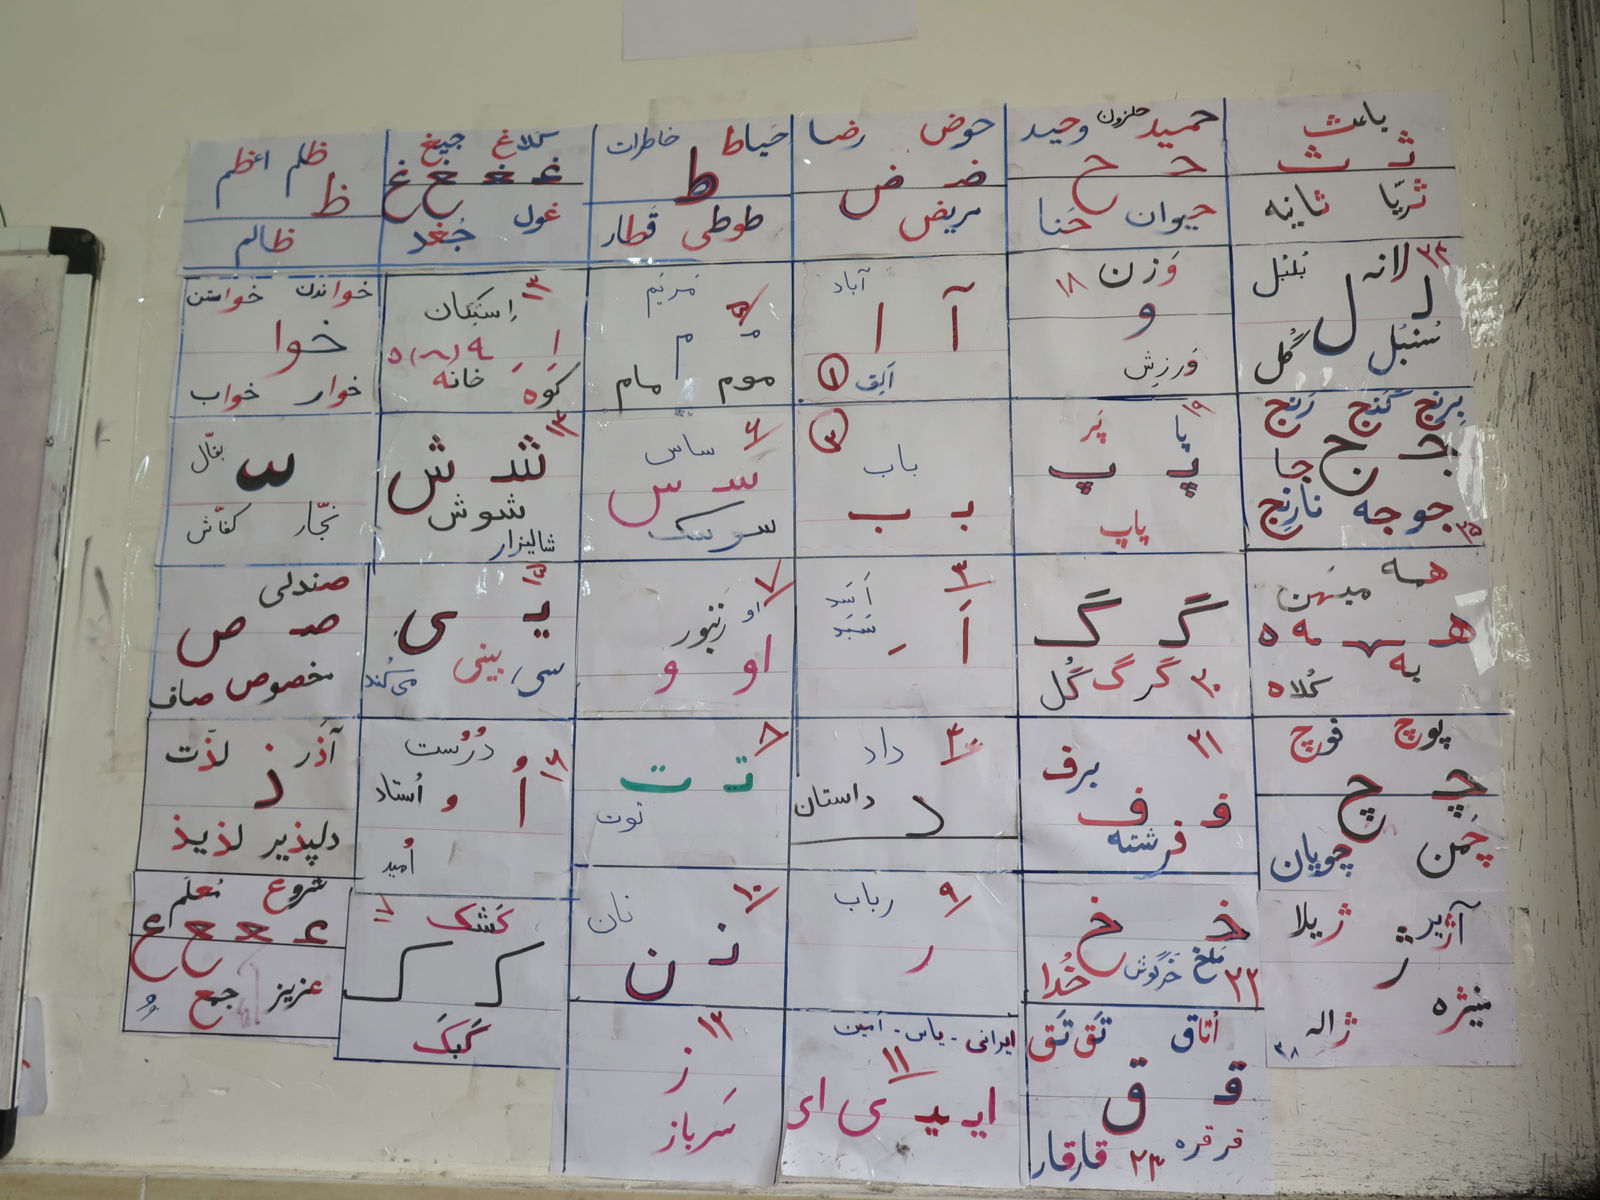 باعث
ثـ ث
ثریّا ثانیه
حمید حلزون وحید
حـ ح
حیوان حَنا
حوض رضا
ضـ ض
مریض
حَیاط خاطرات
ط
طوطی قَطار
کلاغ جیغ
غـ ـغـ ـغ غ
غول جُغد
ظلم اعظم
ظ
ظالم
۲۴
لانه بُلبُل
لـ ل
سُنبُل گُل
وَزن ۱۸
و
وَرزِش
آباد
آ ا
اَلِف ۱
مَریَم
۵
مـ م
موم مام
۱۳
اِستِکان
اِ ـِ ـه ه
کوه خانه
خواندن خواستن
خوا
خوار خواب
بِرِنج گَنج رَنج
جـ ج
جا
جوجه نارِنج
۲۵
۱۹
پا پَر
پـ پ
پاپ
۲
باب
بـ ب
۶
ساس
سـ س
سوسک
۱۴
شـ ش
شوش
شالیزار
بقّال
ـّ
نجّار کفّاش
همه میهَن
هـ ـهـ ـه ه
به
کُلاه
گـ گ
۲۰ گرگ گُل
۳
اَ ـَ
۷
او زَنبور
او و
۱۵
یـ ی
سی بینی می‌کُند
صندلی
صـ ص
مخصوص صاف
پوچ قوچ
چـ چ
چَمَن چوپان
۲۱
برف
فـ ف
فرشته
۴
داد
د
داستان
۸
تـ ت
توت
۱۶
دُرُست
اُ و اُستاد
اُمید
آذَر لذّت
ذ
دلپذیر لذیذ
آژیر ژیلا
ژ
منیژه ژاله
۲۸
خـ خ
مَلَخ خَرگوش خُدا ۲۲
۹
رباب
ر
۱۰
نان
نـ ن
۱۷
کَشک
کـ ک
کَبک
شروع مُعلّم
عـ ـعـ ـع ع
عزیز جمع
اُتاق تَق تَق
قـ ق
فرفره ۲۳ قارقار
ایرانی - یاس - اَمین
۱۱
ایـ یـ ی ای
۱۲
ز
سَرباز